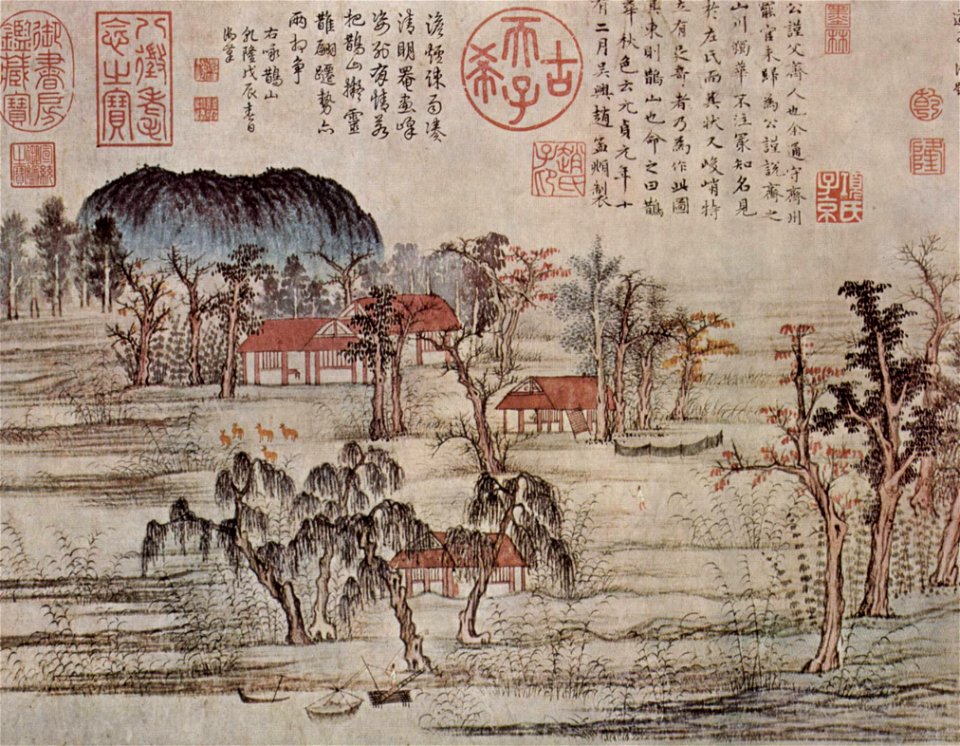 墨林
乾
隆
項氏子京
公謹父齊人也余通守齊州
罷官來歸為公謹說齊之
山川獨華不注冣知名見
於左氏而其狀又峻峭特
立有足奇者乃為作此圖
其東則鵲山也命之曰鵲
華秋色云元貞元年十
有二月吳興趙孟頫製
趙氏子昂
古希天子
澹煙疎雨凌
清明罨畫峰
姿別有情若
把鵲山擬靈
鵲翩躚勢亦
兩相爭
右詠鵲山
乾隆戊辰春日
御筆
八徵耄念之寶
御書房鑑藏寶